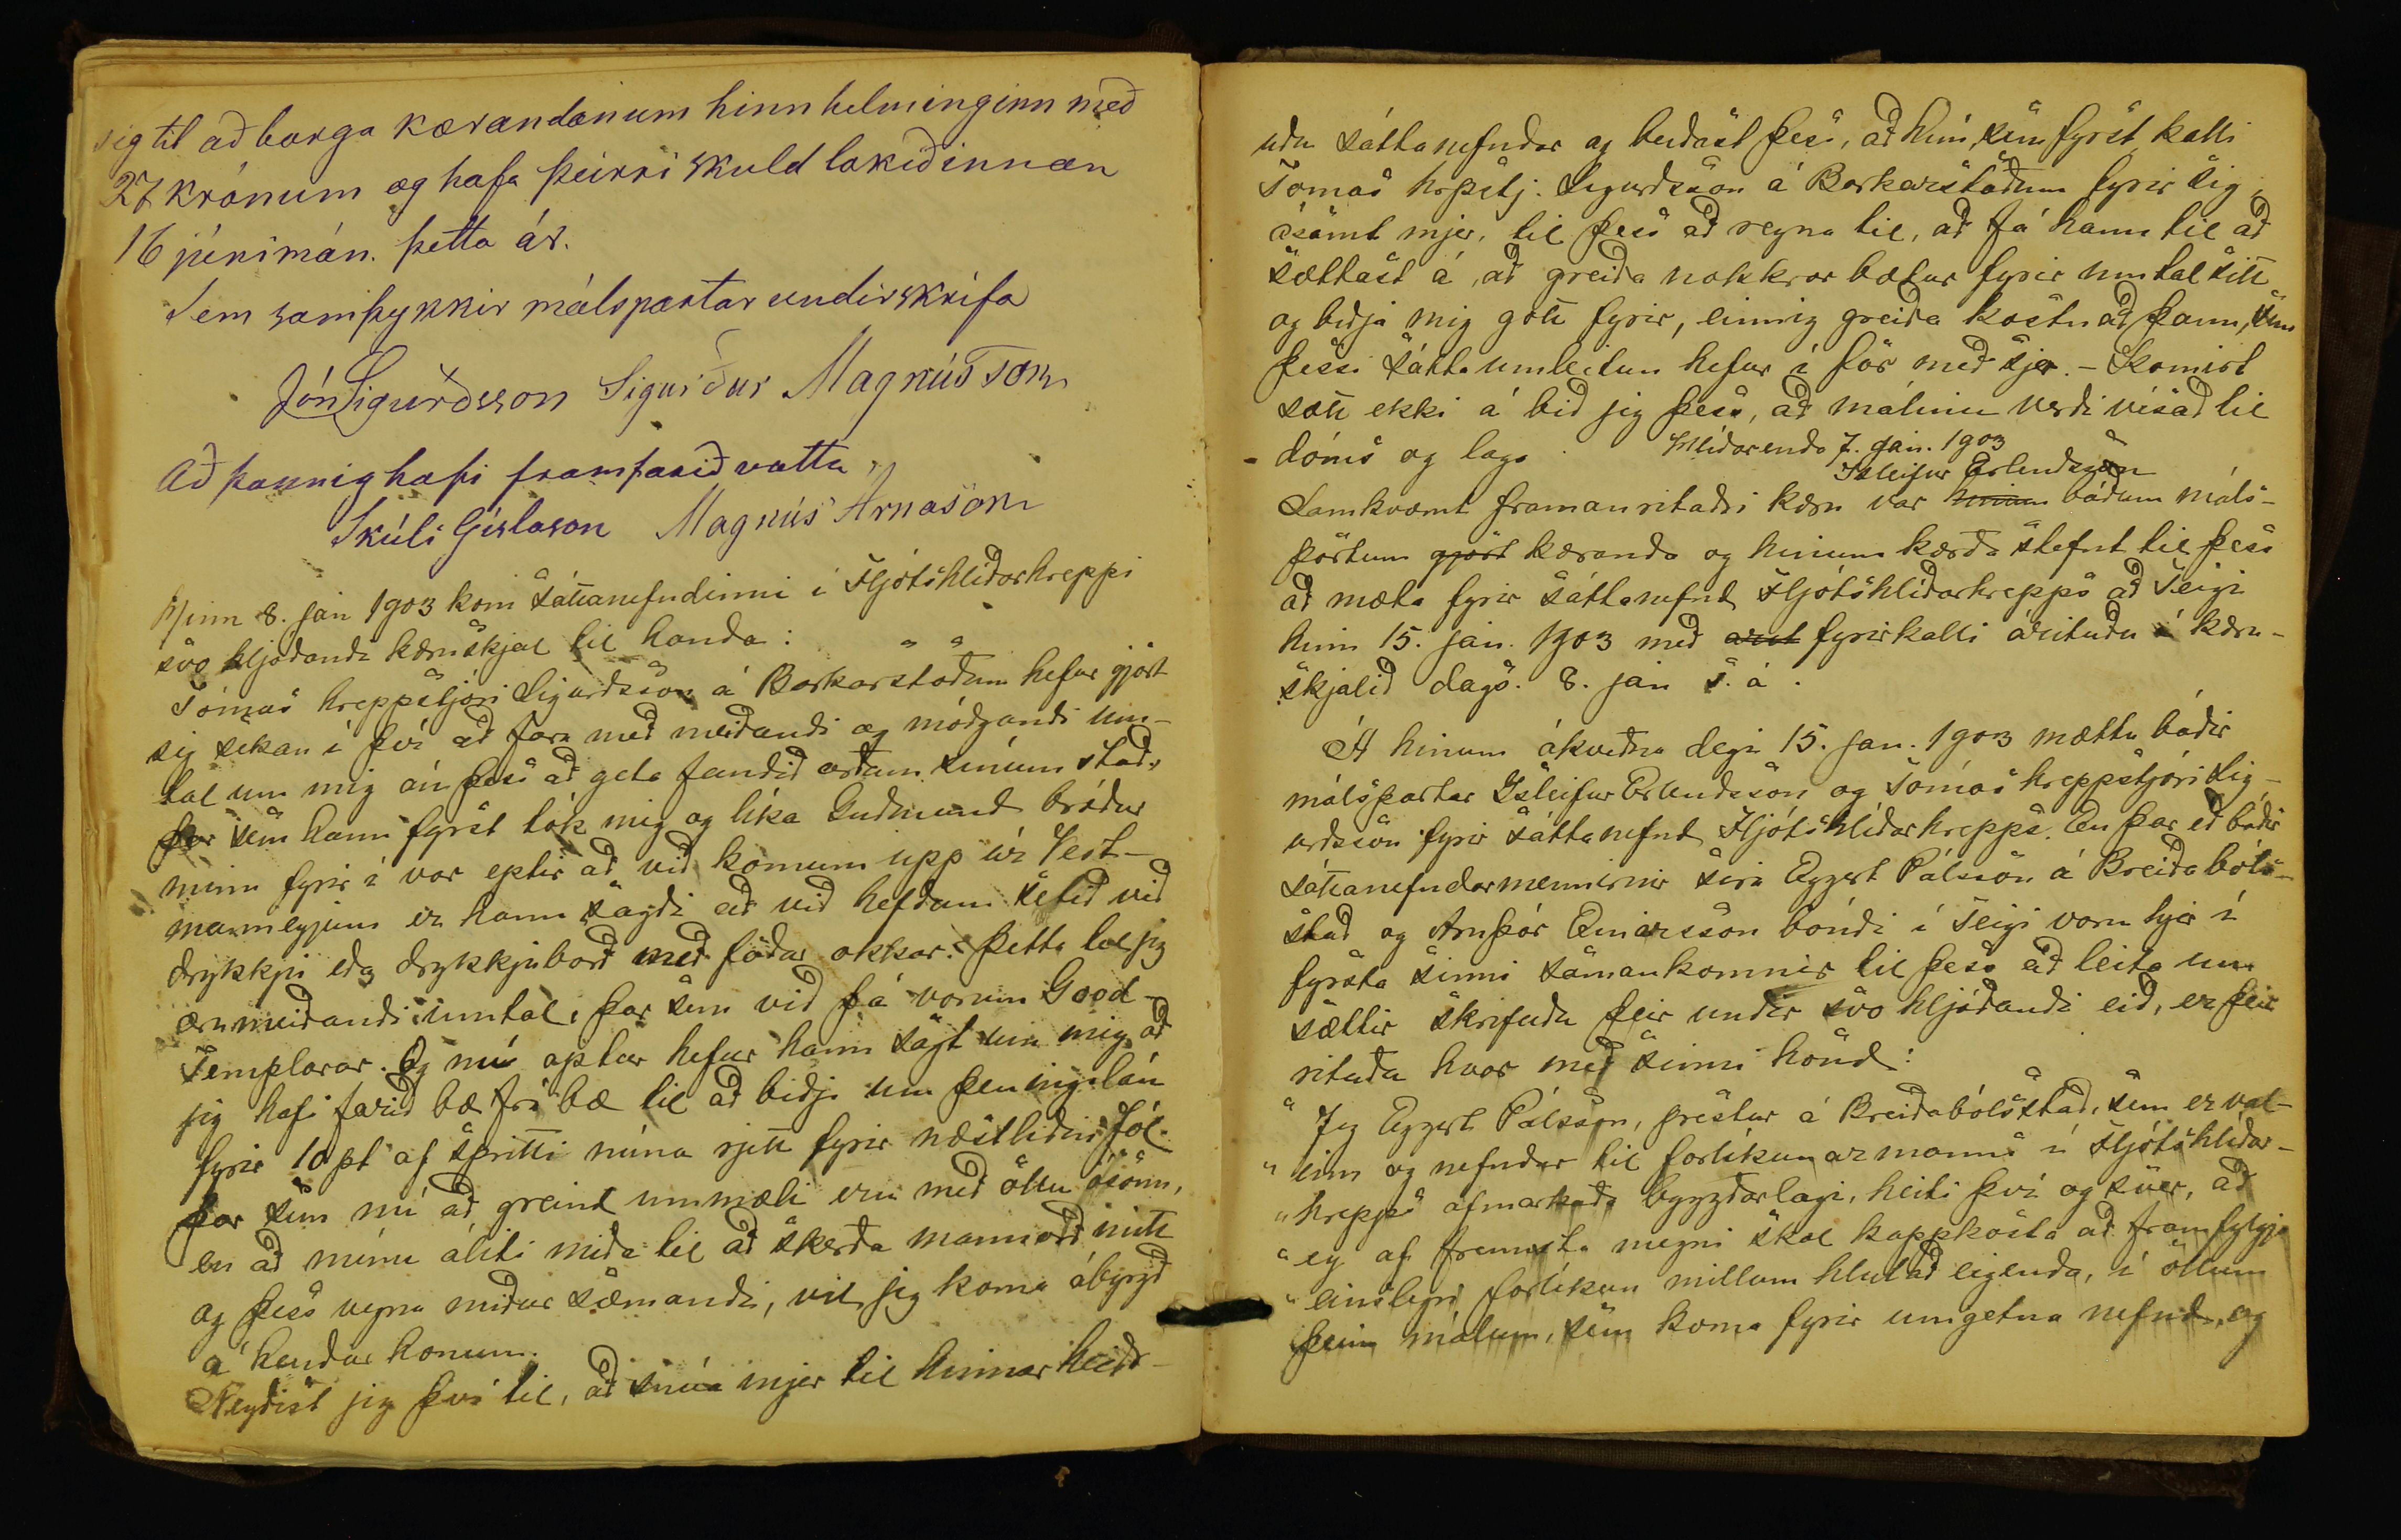 sig til að borga kærandanum hinn helminginn með
27 krónum og hafa þeirri skuld lokið innan
16 júnimán. þetta ár.
Sem samþykkir málspartar undirskrifa
Jón Sigurðsson Sigurður Magnússon
Að þannig hafi framfarið votta
Skúli Gíslason Magnús Arnason
Hinn 8. jan 1903 kom sáttanefndinni i Fljótshlíðarhreppi
svo hljóðandi kæruskjal til handa:
Tómas hreppstjóri Sigurðsson á Barkarstöðum hefur gjört
sig sekan í því að fara með meiðandi og móðgandi um-
tal um mig án þess að geta fundið orðum sínum stað,
þar sem hann fyrst tók mig og líka Guðmund bróður
minn fyrir í vor eptir að við komum upp úr Vest-
manneyjum er hann sagði að við hefðum setið við
drykkju eða drykkjuborð með föður okkar. Þetta tel jeg
ærumeiðandi umtal, þar sem við þá vorum Good-
Templarar. Og nú aptur hefur hann sagt um mig að
jeg hafi farið bæ frá bæ til að biðja um peningalán
fyrir 10 pt af spritti núna rjett fyrir næstliðin jól.
Þar sem nú að greind ummæli eru með öllu ósönn,
en að mínu áliti miða til að skerða mannorð mitt
og þess vegna miður sæmandi, vil jeg koma ábyrgð
á hendur honum.
Neyðist jeg því til, að snúa mjer til hinnar heiðr-
uðu sáttanefndar og beiðast þess, að hún sem fyrst kalli
Tómas hrpstj. Sigurðsson á Barkarstöðum fyrir sig,
ásamt mjer, til þess að reyna til, að fá hann til að
sættast á, að greiða nokkrar bætur fyrir umtal sitt
og biðja mig gott fyrir, einnig greiða kostnað þann, sem
þessi sáttaumleitun hefur í för með sjer. – Komist
sátt ekki á bið jeg þess, að málinu verði vísað til
dóms og laga. Hlíðarenda 7. jan. 1903
Ísleifur Erlendsson
Samkvæmt framanritaðri kæru var hinum báðum máls-
pörtum gjört kæranda og hinum kærða stefnt til þess
að mæta fyrir sáttanefnd Fljótshlíðarhrepps að Teigi
hinn 15. jan. 1903 með fyrirkalli árituðu á kæru-
skjalið dags. 8. jan s. á.
Á hinum ákveðna degi 15. jan. 1903 mættu báðir
málspartar Ísleifur Erlendsson og Tómás hreppstjóri Sig-
urðsson fyrir sáttanefnd Fljótshlíðarhrepps. En þar eð báðir
sáttanefndarmennirnir sira Eggert Pálsson á Breiðaból-
stað og Arnþór Einarsson bóndi í Teigi voru hjer í
fyrsta sinni samankomnir til þess að leita um
sættir skrifuðu þeir undir svo hljóðandi eið, er þeir
rituðu hvor með sinni hönd:
" Jeg Eggert Pálsson, prestur á Breiðabólsstað, sem er val-
" inn og nefndur til forlíkunarmanns í Fljótshlíðar-
" hrepps afmarkaða byggðarlagi, heiti því og sver, að
" eg af fremsta megni skal kappkosta að framfylgja
" einslegri forlíkun millum hlutaðeigenda, í öllum
þeim málum, sem koma fyrir umgetna nefnd, og